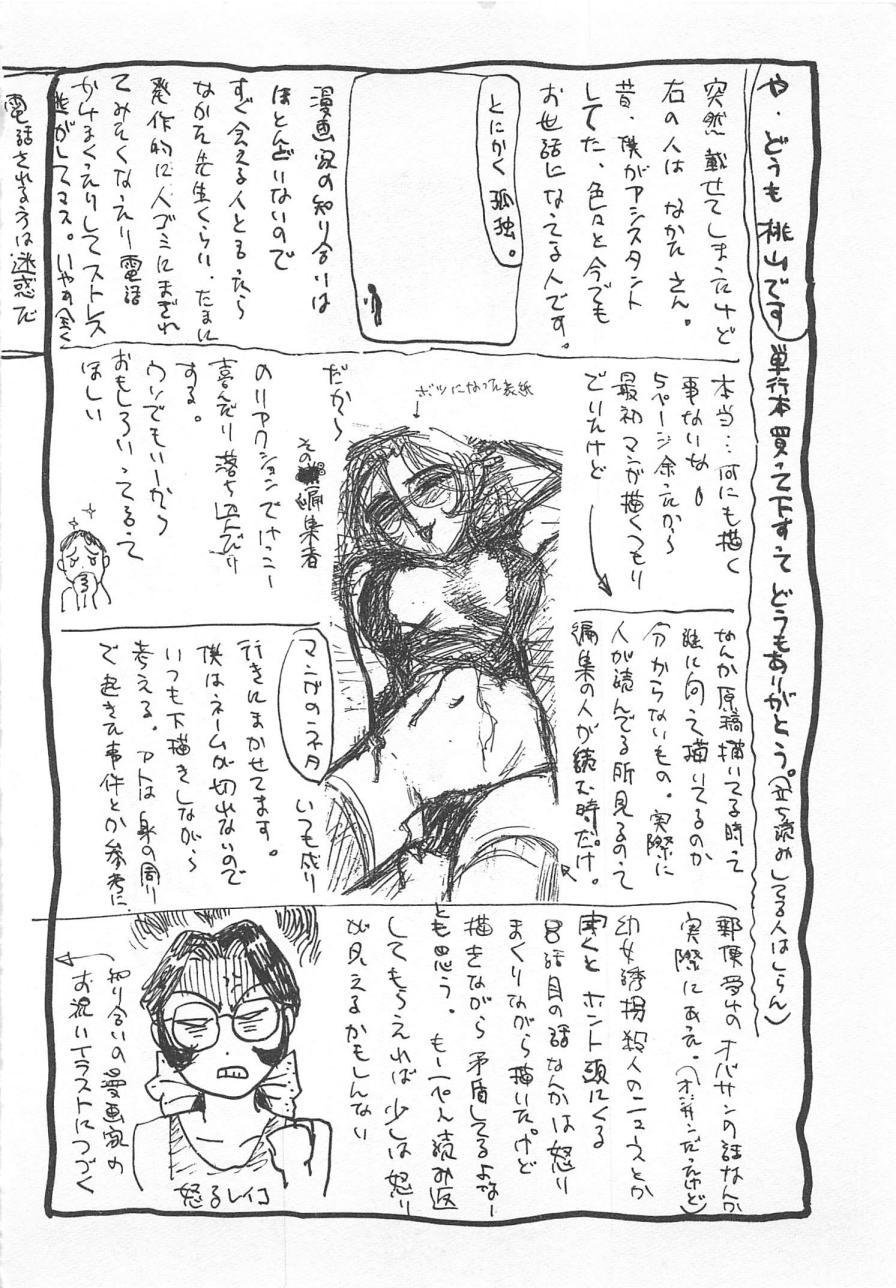 や、どうも桃山です
単行本買って下すってどうもありがとう。(立ち読みしてる人はしらん)
突然載せてしまったけど
右の人はなかたさん。
昔、僕がアシスタント
してた、色々と今でも
お世話になってる人です。
とにかく孤独。
漫画家の知り合いは
ほとんどいないので
すぐ会える人とゆったら
なかた先生くらい、たまに
発作的に人ゴミにまぎれ
てみたくなったり電話
かけまくったりしてストレス
逃がしてマス。いやあ全く
電話される方は迷惑だ
本当…何にも描く
事ないな
5ページ余ったから
最初マンガ描くつもり
でいたけど
なんか原稿描いてる時って
誰に向って描いてるのか
分からないもの。実際に
人が読んでる所見るのって
編集の人が読む時だけ。
ボツになった表紙
だから
その編集者
のリアクションでけっこー
喜んだり落ち込んだり
する。
ウソでもいーから
おもしろいってゆって
ほしい
マンガのネタ
いつも成り
行きにまかせてます。
僕はネームが切れないので
いつも下描きしながら
考える。アトは身の周り
で起きた事件とか参考に
郵便受けのオバサンの話なんか
実際にあった。(オジサンだったけど)
幼女誘拐殺人のニュースとか
聞くとホント頭にくる
8話目の話なんかは怒り
まくりながら描いたけど
描きながら矛盾してるよなー
とも思う。もー一ぺん読み返
してもらえれば少しは怒り
が見えるかもしんない
怒るレイコ
知り合いの漫画家の
お祝いイラストにつづく